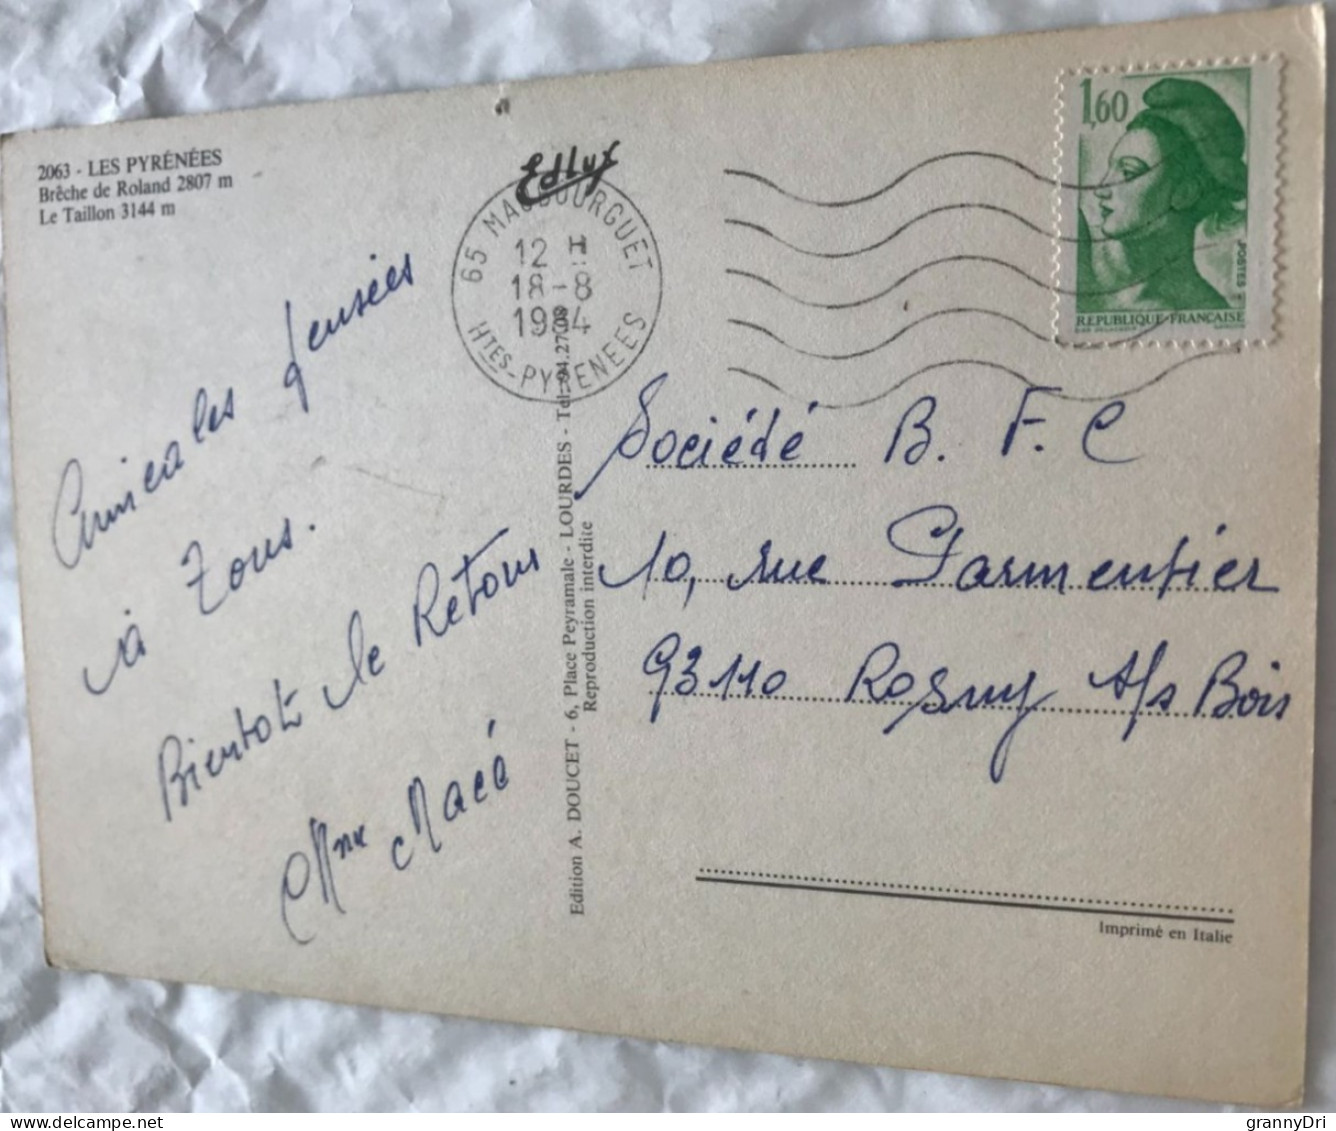 2063 - LES PYRÉNÉES
Brêche de Roland 2807 m
Le Taillon 3144 m
Edlux
65 MAUBOURGUET
12 H
18-8
1984
HTES-PYRENEES
1,60
POSTES
REPUBLIQUE FRANÇAISE
Amicales pensées
à Tous.
Bientôt le Retour
Mme Macé
Edition A. DOUCET - 6, Place Peyramale - LOURDES - Tel: 94.27.08
Reproduction interdite
Société B. F. C
10, rue Parmentier
93110 Rosny s/s Bois
Imprimé en Italie
grannyDri